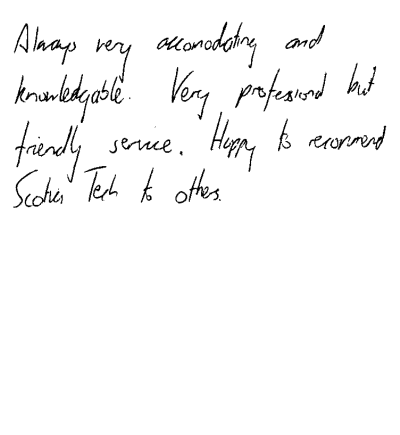 Always very accomodating and
knowledgable. Very professional but
friendly service. Happy to recommend
Scotia Tech to others.